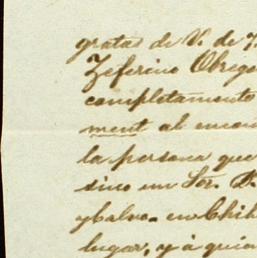 gratas de V. de
Zeferino Obreg
completamente
ment al encon
la persona que
sino un Sor. D.
y Calvo. en Chih
lugar, y á quien